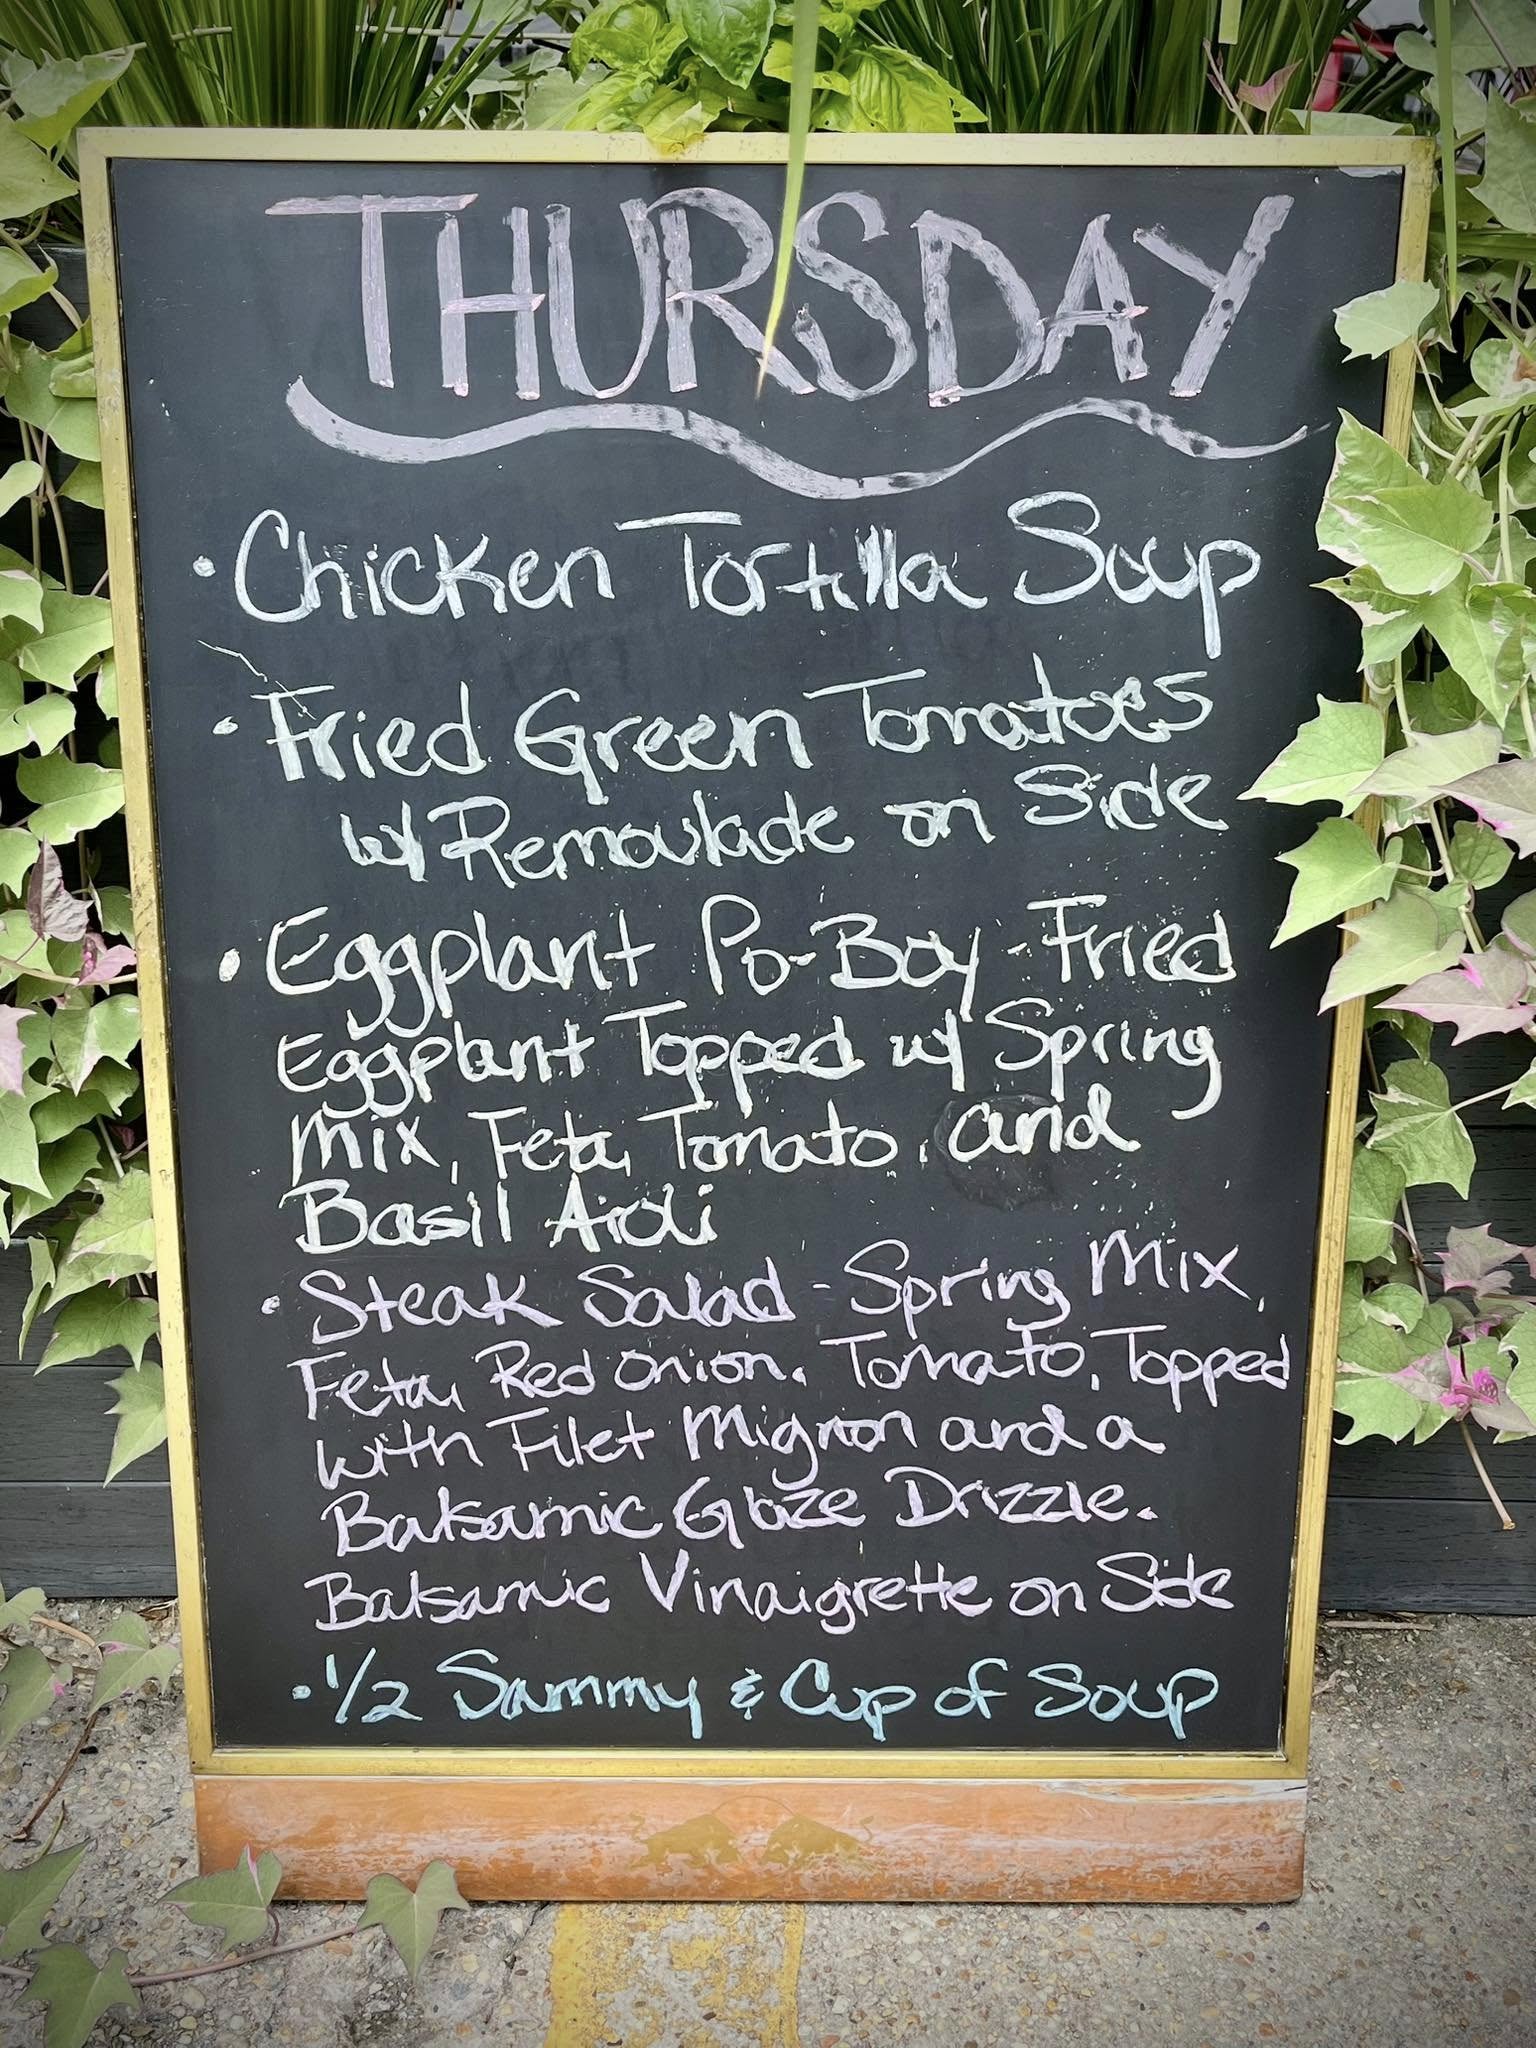 THURSDAY
• Chicken Tortilla Soup
• Fried Green Tomatoes
w/ Remoulade on Side
• Eggplant Po-Boy - Fried
Eggplant Topped w/ Spring
Mix, Feta, Tomato, and
Basil Aioli
• Steak Salad - Spring Mix,
Feta, Red Onion, Tomato, Topped
with Filet Mignon and a
Balsamic Glaze Drizzle.
Balsamic Vinaigrette on Side
• 1/2 Sammy & Cup of Soup